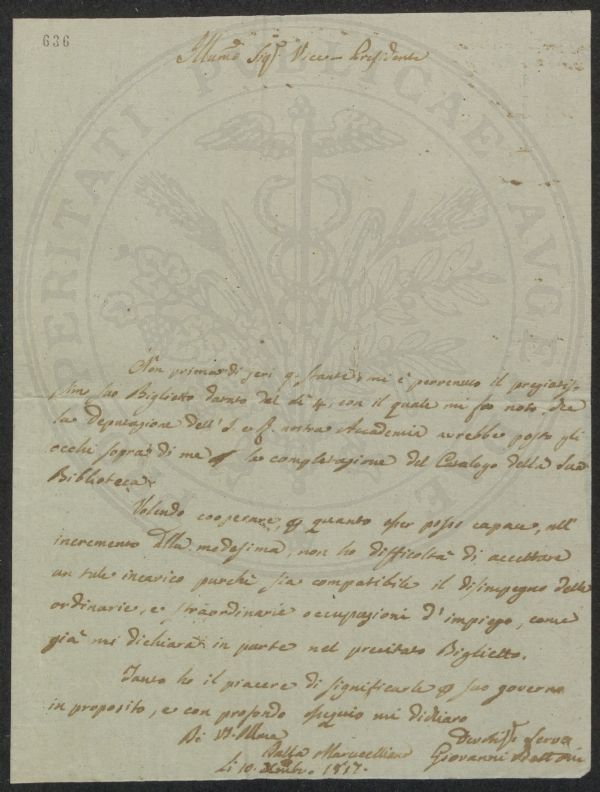 636
Illumo Sigr Vice-Presidente
Non prima di jeri g. stante, mi è pervenuto il pregiatis-
simo suo Biglietto datato del dì 4, con il quale mi fa noto, che
la Deputazione dell' I. e R. nostra Accademia avrebbe posto gli
occhi sopra di me p la completazione del Catalogo della sua
Biblioteca.
Volendo cooperare, p quanto esser posso capace, all'
incremento della medesima, non ho difficoltà di accettare
un tale incarico purchè sia compatibile il disimpegno delle
ordinarie, e straordinarie occupazioni d'impiego, come
già mi dichiara in parte nel precitato Biglietto.
Tanto ho il piacere di significarle p suo governo
in proposito, e con profondo ossequio mi dichiaro
Di VS. Illma
Dalla Marucelliana
Li 10. 1817.
Devotiss. Servo
Giovanni
PROSPERITATI PUBLICAE AUGENDAE